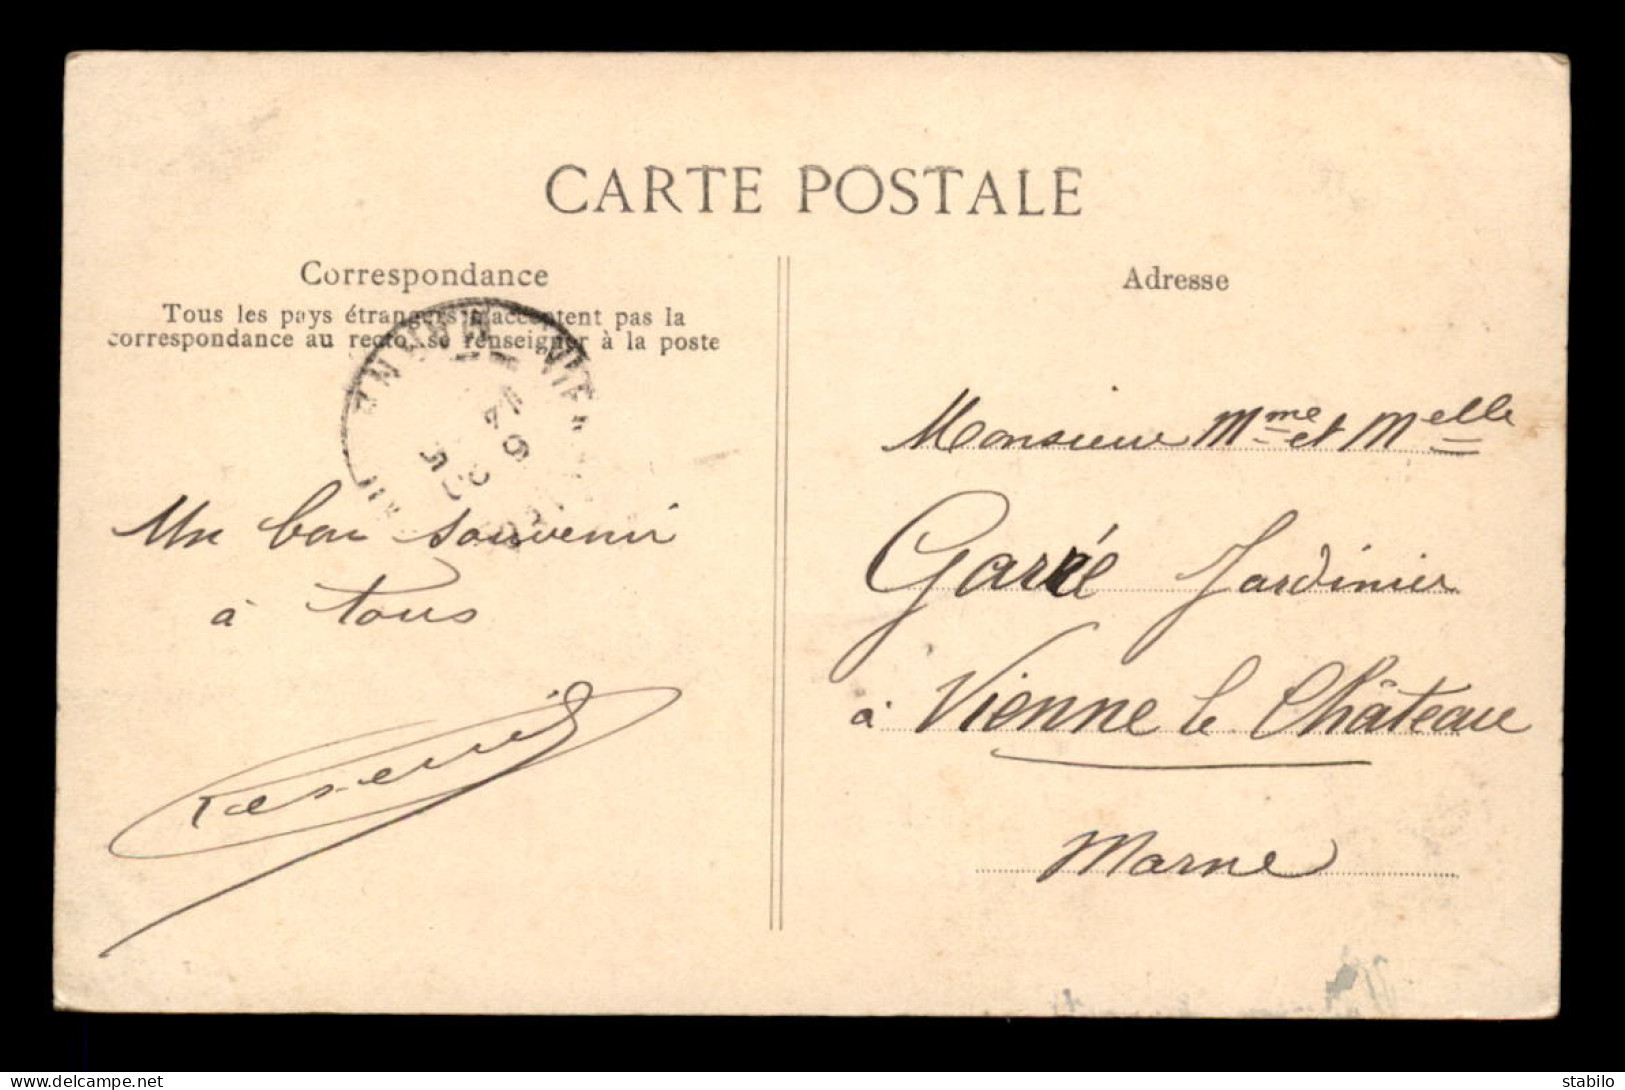 CARTE POSTALE
Correspondance
Tous les pays étrangers n'acceptent pas la
correspondance au recto, se renseigner à la poste
Un bon souvenir
à tous
Adresse
Monsieur Mme et Melle
Garré Jardinier
à Vienne le Château
Marne
www.delcampe.net
stabilo